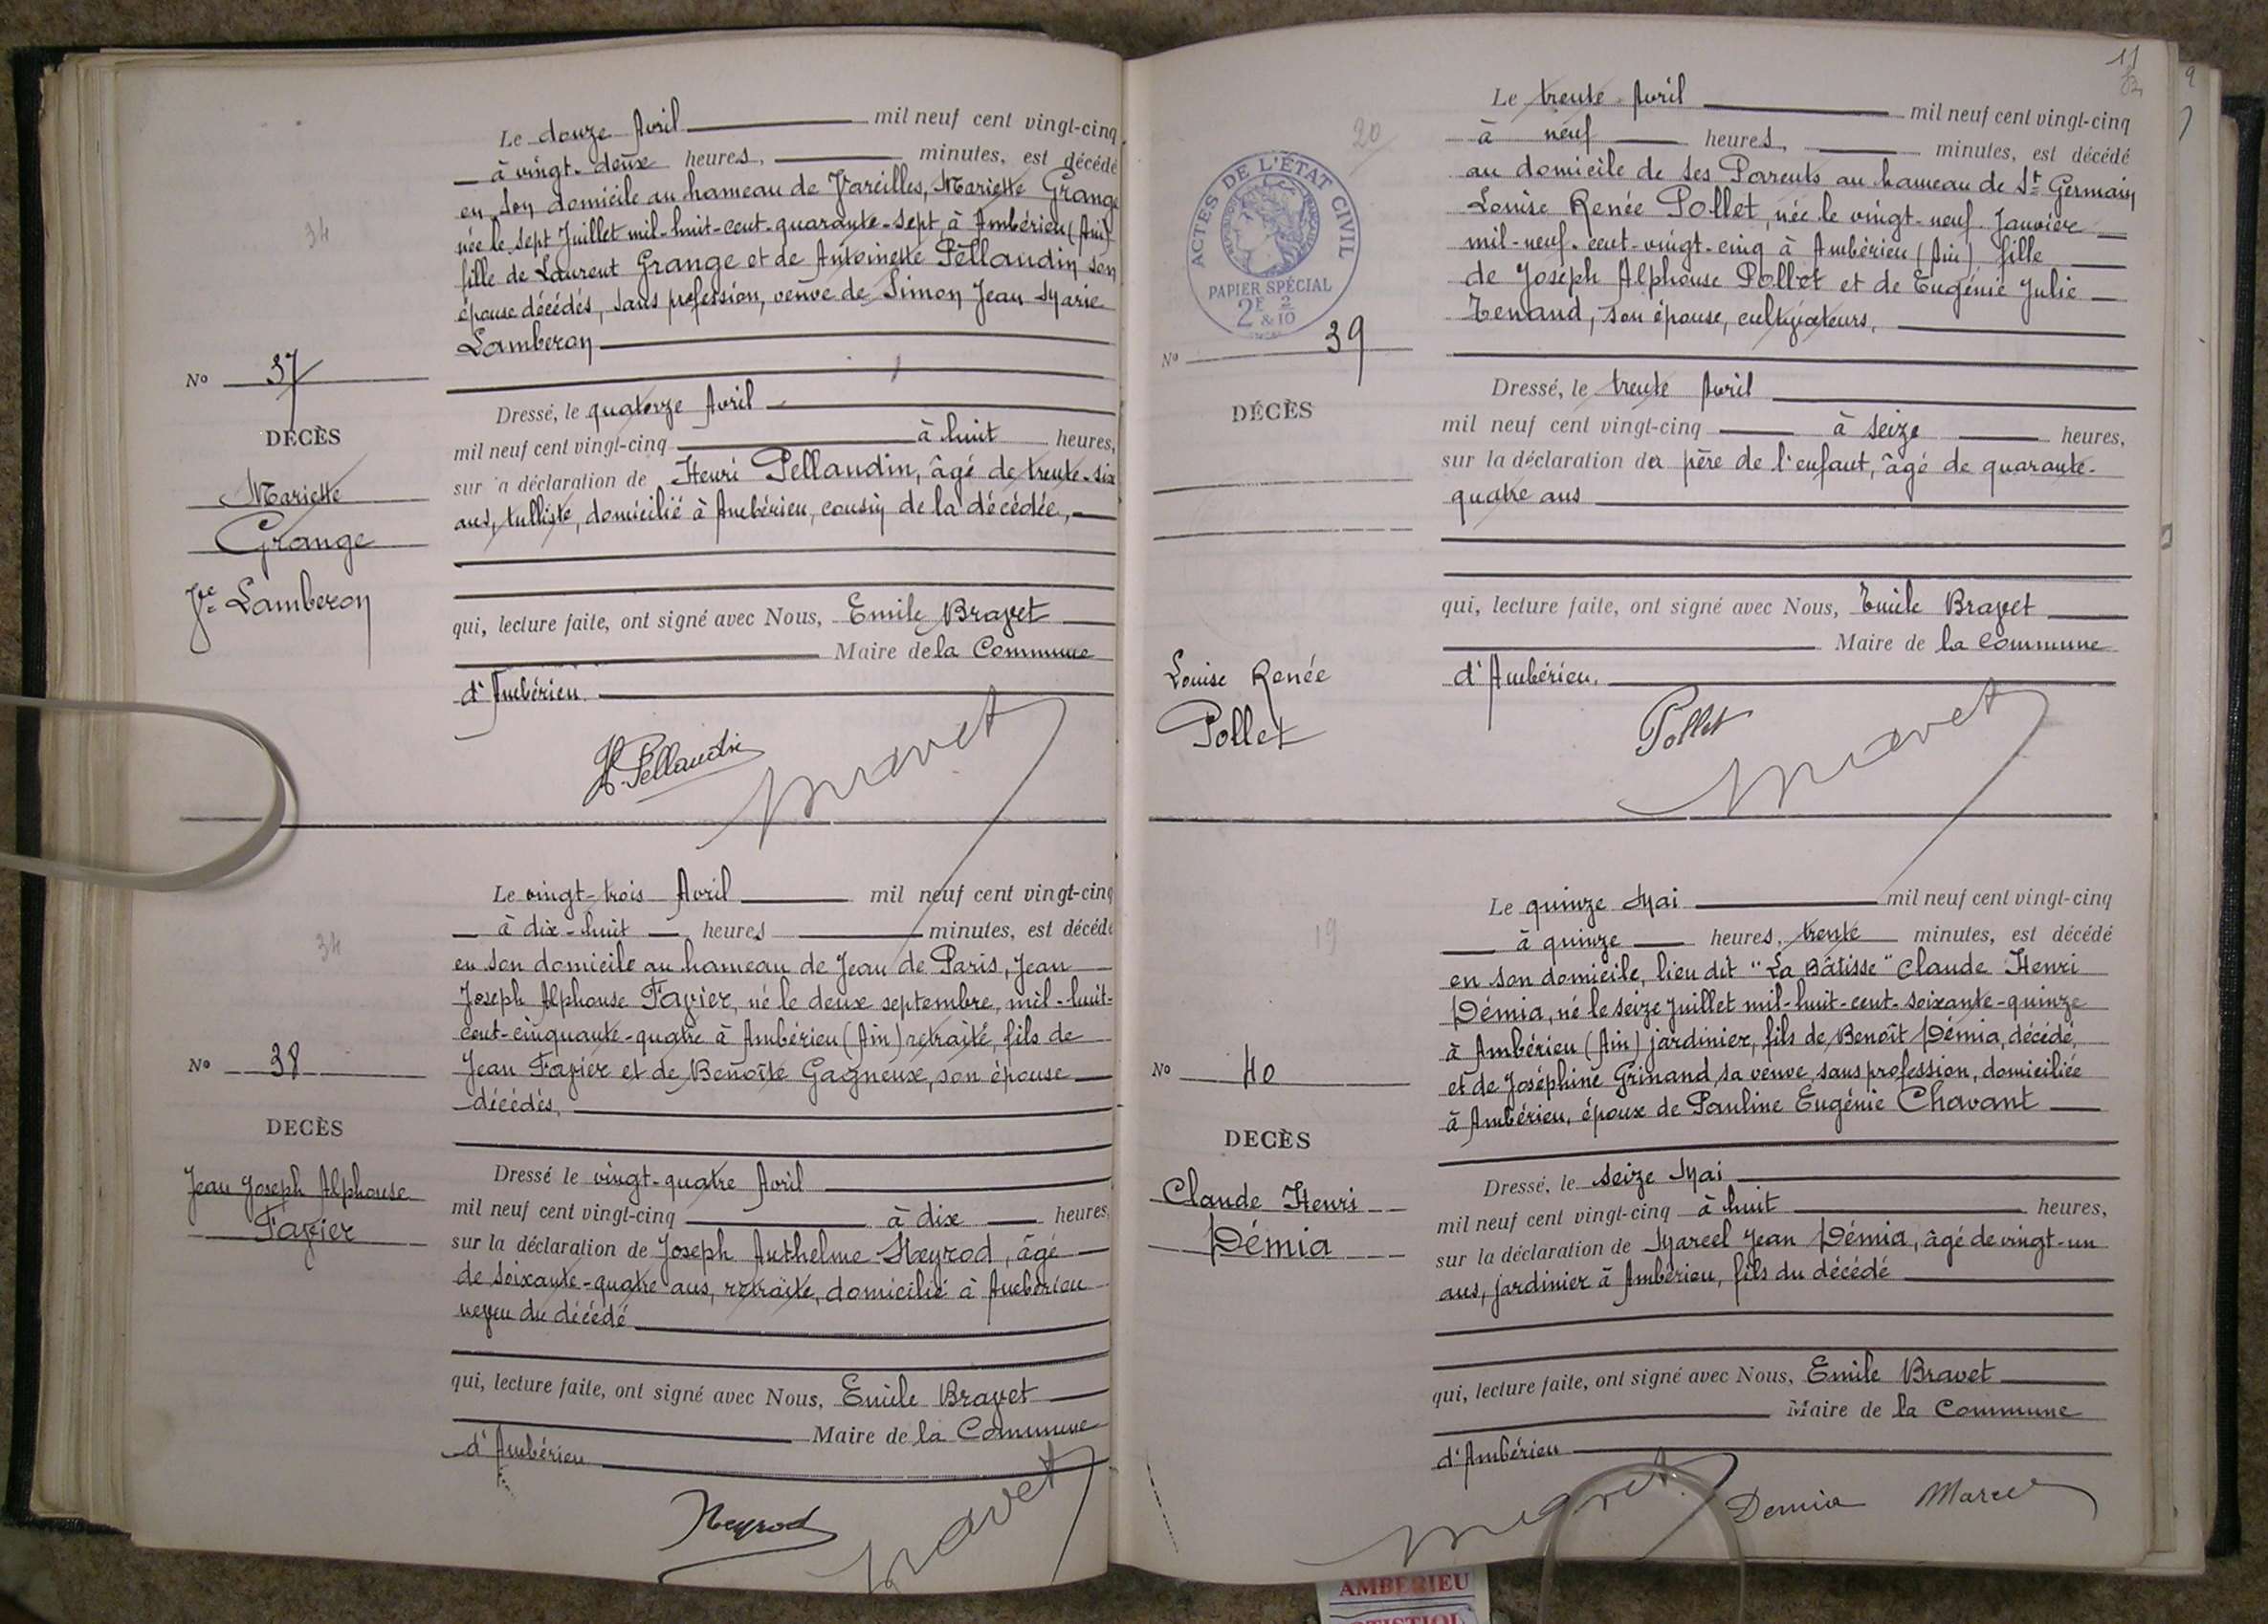 34
Le douze Avril mil neuf cent vingt-cinq
à vingt-deux heures, minutes, est décédé
en son domicile au hameau de Vareilles, Mariette Grange
née le sept Juillet mil-huit-cent-quarante-sept à Ambérieu (Ain)
fille de Laurent Grange et de Antoinette Pellaudin son
épouse décédés, sans profession, veuve de Simon Jean Marie
Lamberon
No 37
DECÈS
Mariette
Grange
Vve Lamberon
Dressé, le quatorze Avril
mil neuf cent vingt-cinq à huit heures,
sur la déclaration de Henri Pellaudin, âgé de trente-six
ans, tulliste, domicilié à Ambérieu, cousin de la décédée,
qui, lecture faite, ont signé avec Nous, Emile Bravet
Maire de la Commune
d'Ambérieu.
H. Pellaudin Bravet
34
Le vingt-trois Avril mil neuf cent vingt-cinq
à dix-huit heures minutes, est décédé
en son domicile au hameau de Jean de Paris, Jean
Joseph Alphonse Favier, né le deux septembre, mil-huit-
cent-cinquante-quatre à Ambérieu (Ain) retraité, fils de
Jean Favier et de Benoîte Gagneux, son épouse
décédés.
No 38
DECÈS
Jean Joseph Alphonse
Favier
Dressé le vingt-quatre Avril
mil neuf cent vingt-cinq à dix heures,
sur la déclaration de Joseph Anthelme Neyrod, âgé
de soixante-quatre ans, retraité, domicilié à Ambérieu
neveu du décédé
qui, lecture faite, ont signé avec Nous, Emile Bravet
Maire de la Commune
d'Ambérieu
Neyrod Bravet
11
9
20
ACTES DE L'ÉTAT CIVIL
PAPIER SPÉCIAL
2F & 2/10
Le trente Avril mil neuf cent vingt-cinq
à neuf heures, minutes, est décédé
au domicile de ses Parents au hameau de St Germain
Louise Renée Pollet, née le vingt-neuf Janvier
mil-neuf-cent-vingt-cinq à Ambérieu (Ain) fille
de Joseph Alphonse Pollet et de Eugénie Julie
Tenand, son épouse, cultivateurs.
No 39
DÉCÈS
Louise Renée
Pollet
Dressé, le trente Avril
mil neuf cent vingt-cinq à seize heures,
sur la déclaration du père de l'enfant, âgé de quarante-
quatre ans
qui, lecture faite, ont signé avec Nous, Emile Bravet
Maire de la Commune
d'Ambérieu.
Pollet Bravet
19
Le quinze Mai mil neuf cent vingt-cinq
à quinze heures, trente minutes, est décédé
en son domicile, lieu dit "La Bâtisse" Claude Henri
Démia, né le seize Juillet mil-huit-cent-soixante-quinze
à Ambérieu (Ain) jardinier, fils de Benoît Démia, décédé,
et de Joséphine Grinand, sa veuve, sans profession, domiciliée
à Ambérieu, époux de Pauline Eugénie Chavant
No 40
DECÈS
Claude Henri
Démia
Dressé, le seize Mai
mil neuf cent vingt-cinq à huit heures,
sur la déclaration de Marcel Jean Démia, âgé de vingt-un
ans, jardinier à Ambérieu, fils du décédé
qui, lecture faite, ont signé avec Nous, Emile Bravet
Maire de la Commune
d'Ambérieu
Bravet Demia Marcel
AMBERIEU